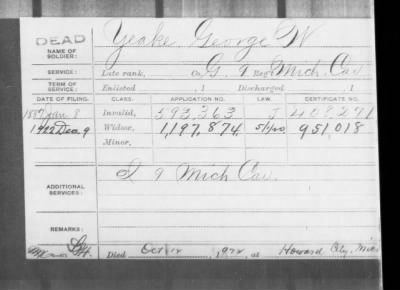 DEAD
NAME OF SOLDIER:
Yeake, George W
SERVICE:
Late rank, Co. G, 9 Reg't Mich. Cav.
TERM OF SERVICE:
Enlisted , 1 Discharged , 1
DATE OF FILING. CLASS. APPLICATION NO. LAW. CERTIFICATE NO.
1887 Jan. 8 Invalid, 593,363
1922 Dec. 9 Widow, 1,197,874 951,018
Minor,
ADDITIONAL SERVICES:
I 9 Mich Cav.
REMARKS:
Died Oct 12, 1922, at Howard City, Mich